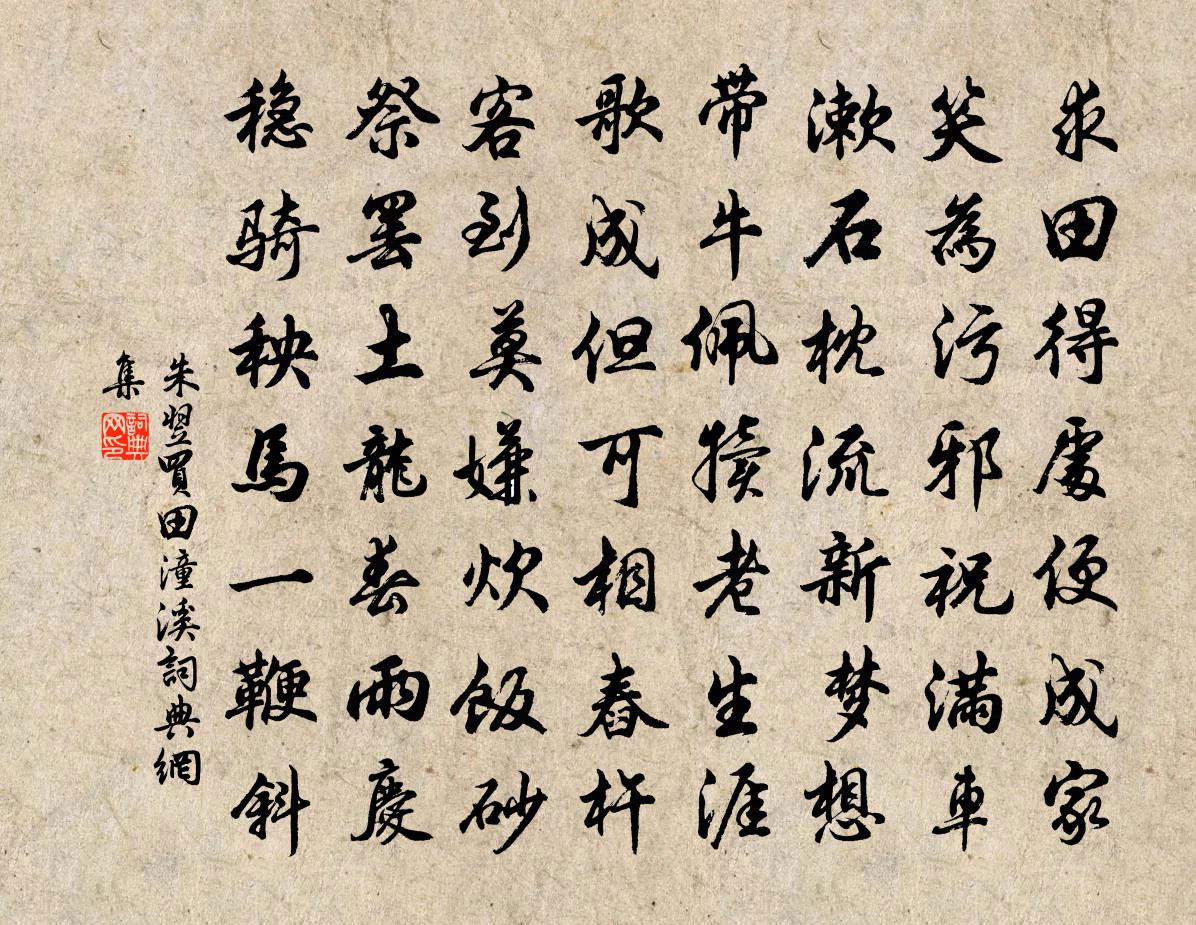 求田得處便成家
笑為污邪祝滿車
漱石枕流新梦想
带牛佩犢老生涯
歌成但可相舂杵
客到莫嫌炊飯砂
祭罢土龍春雨慶
稳骑秧馬一鞭斜
朱翌買田潼溪詞典網
集
詞典网印